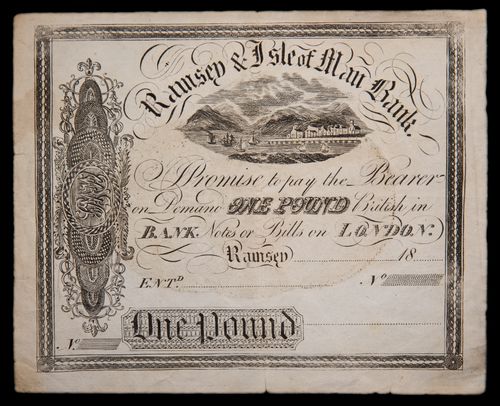 Ramsey & Isle of Man Bank.
I Promise to pay the Bearer
on Demand ONE POUND British in
BANK Notes or Bills on LONDON.
Ramsey 18
ENT.D No
One Pound
No.